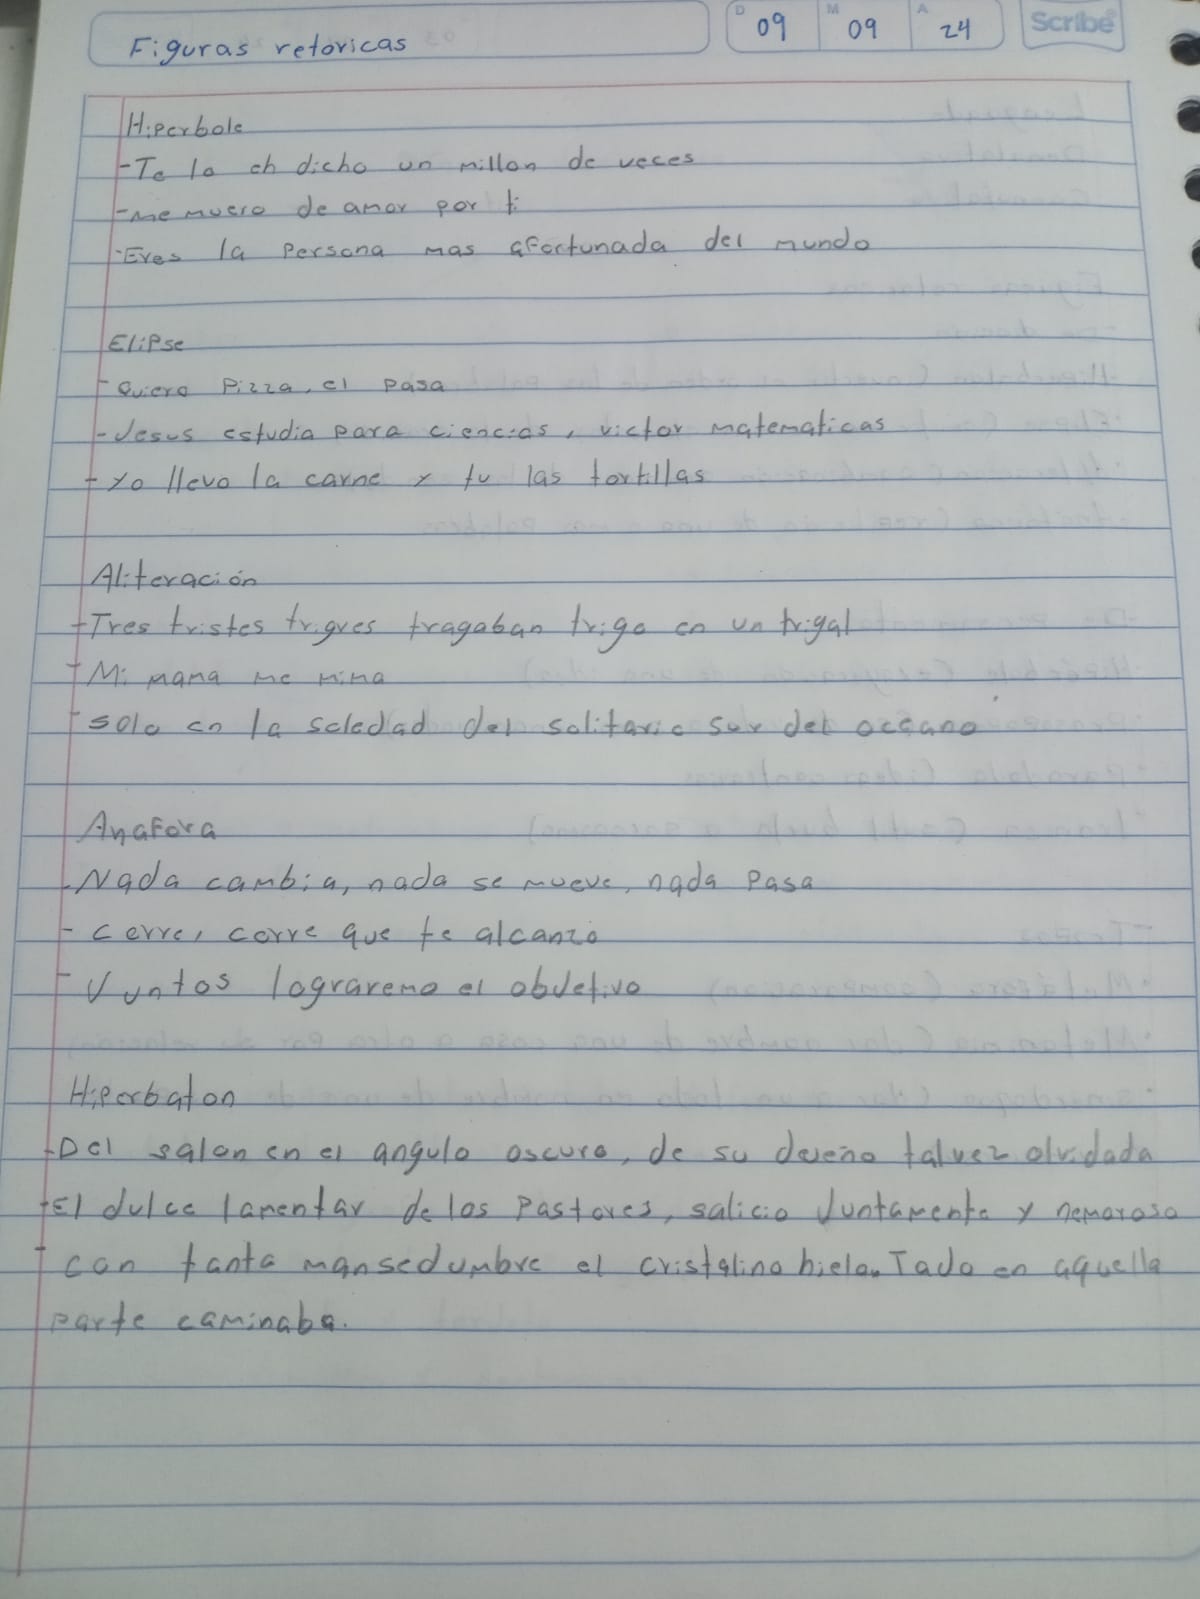 Figuras retoricas
D 09 M 09 A 24
Scribe
Hiperbole
-Te lo eh dicho un millon de veces
-me muero de amor por ti
-Eres la persona mas afortunada del mundo
Elipse
-Quiero Pizza, el pasa
-Jesus estudia para ciencias, victor matematicas
-Yo llevo la carne y tu las tortillas
Aliteración
-Tres tristes trigres tragaban trigo en un trigal
-Mi mama me mima
-solo en la soledad del solitario sur del oceano
Anafora
-Nada cambia, nada se mueve, nada pasa
-Corre, corre que te alcanzo
-Juntos lograremo el objetivo
Hiperbaton
-Del salon en el angulo oscuro, de su dueño talvez olvidada
-El dulce lamentar de los Pastores, salicio Juntamente y nemoroso
-con tanta mansedumbre el cristalino hielo. Tado en aquella
parte caminaba.